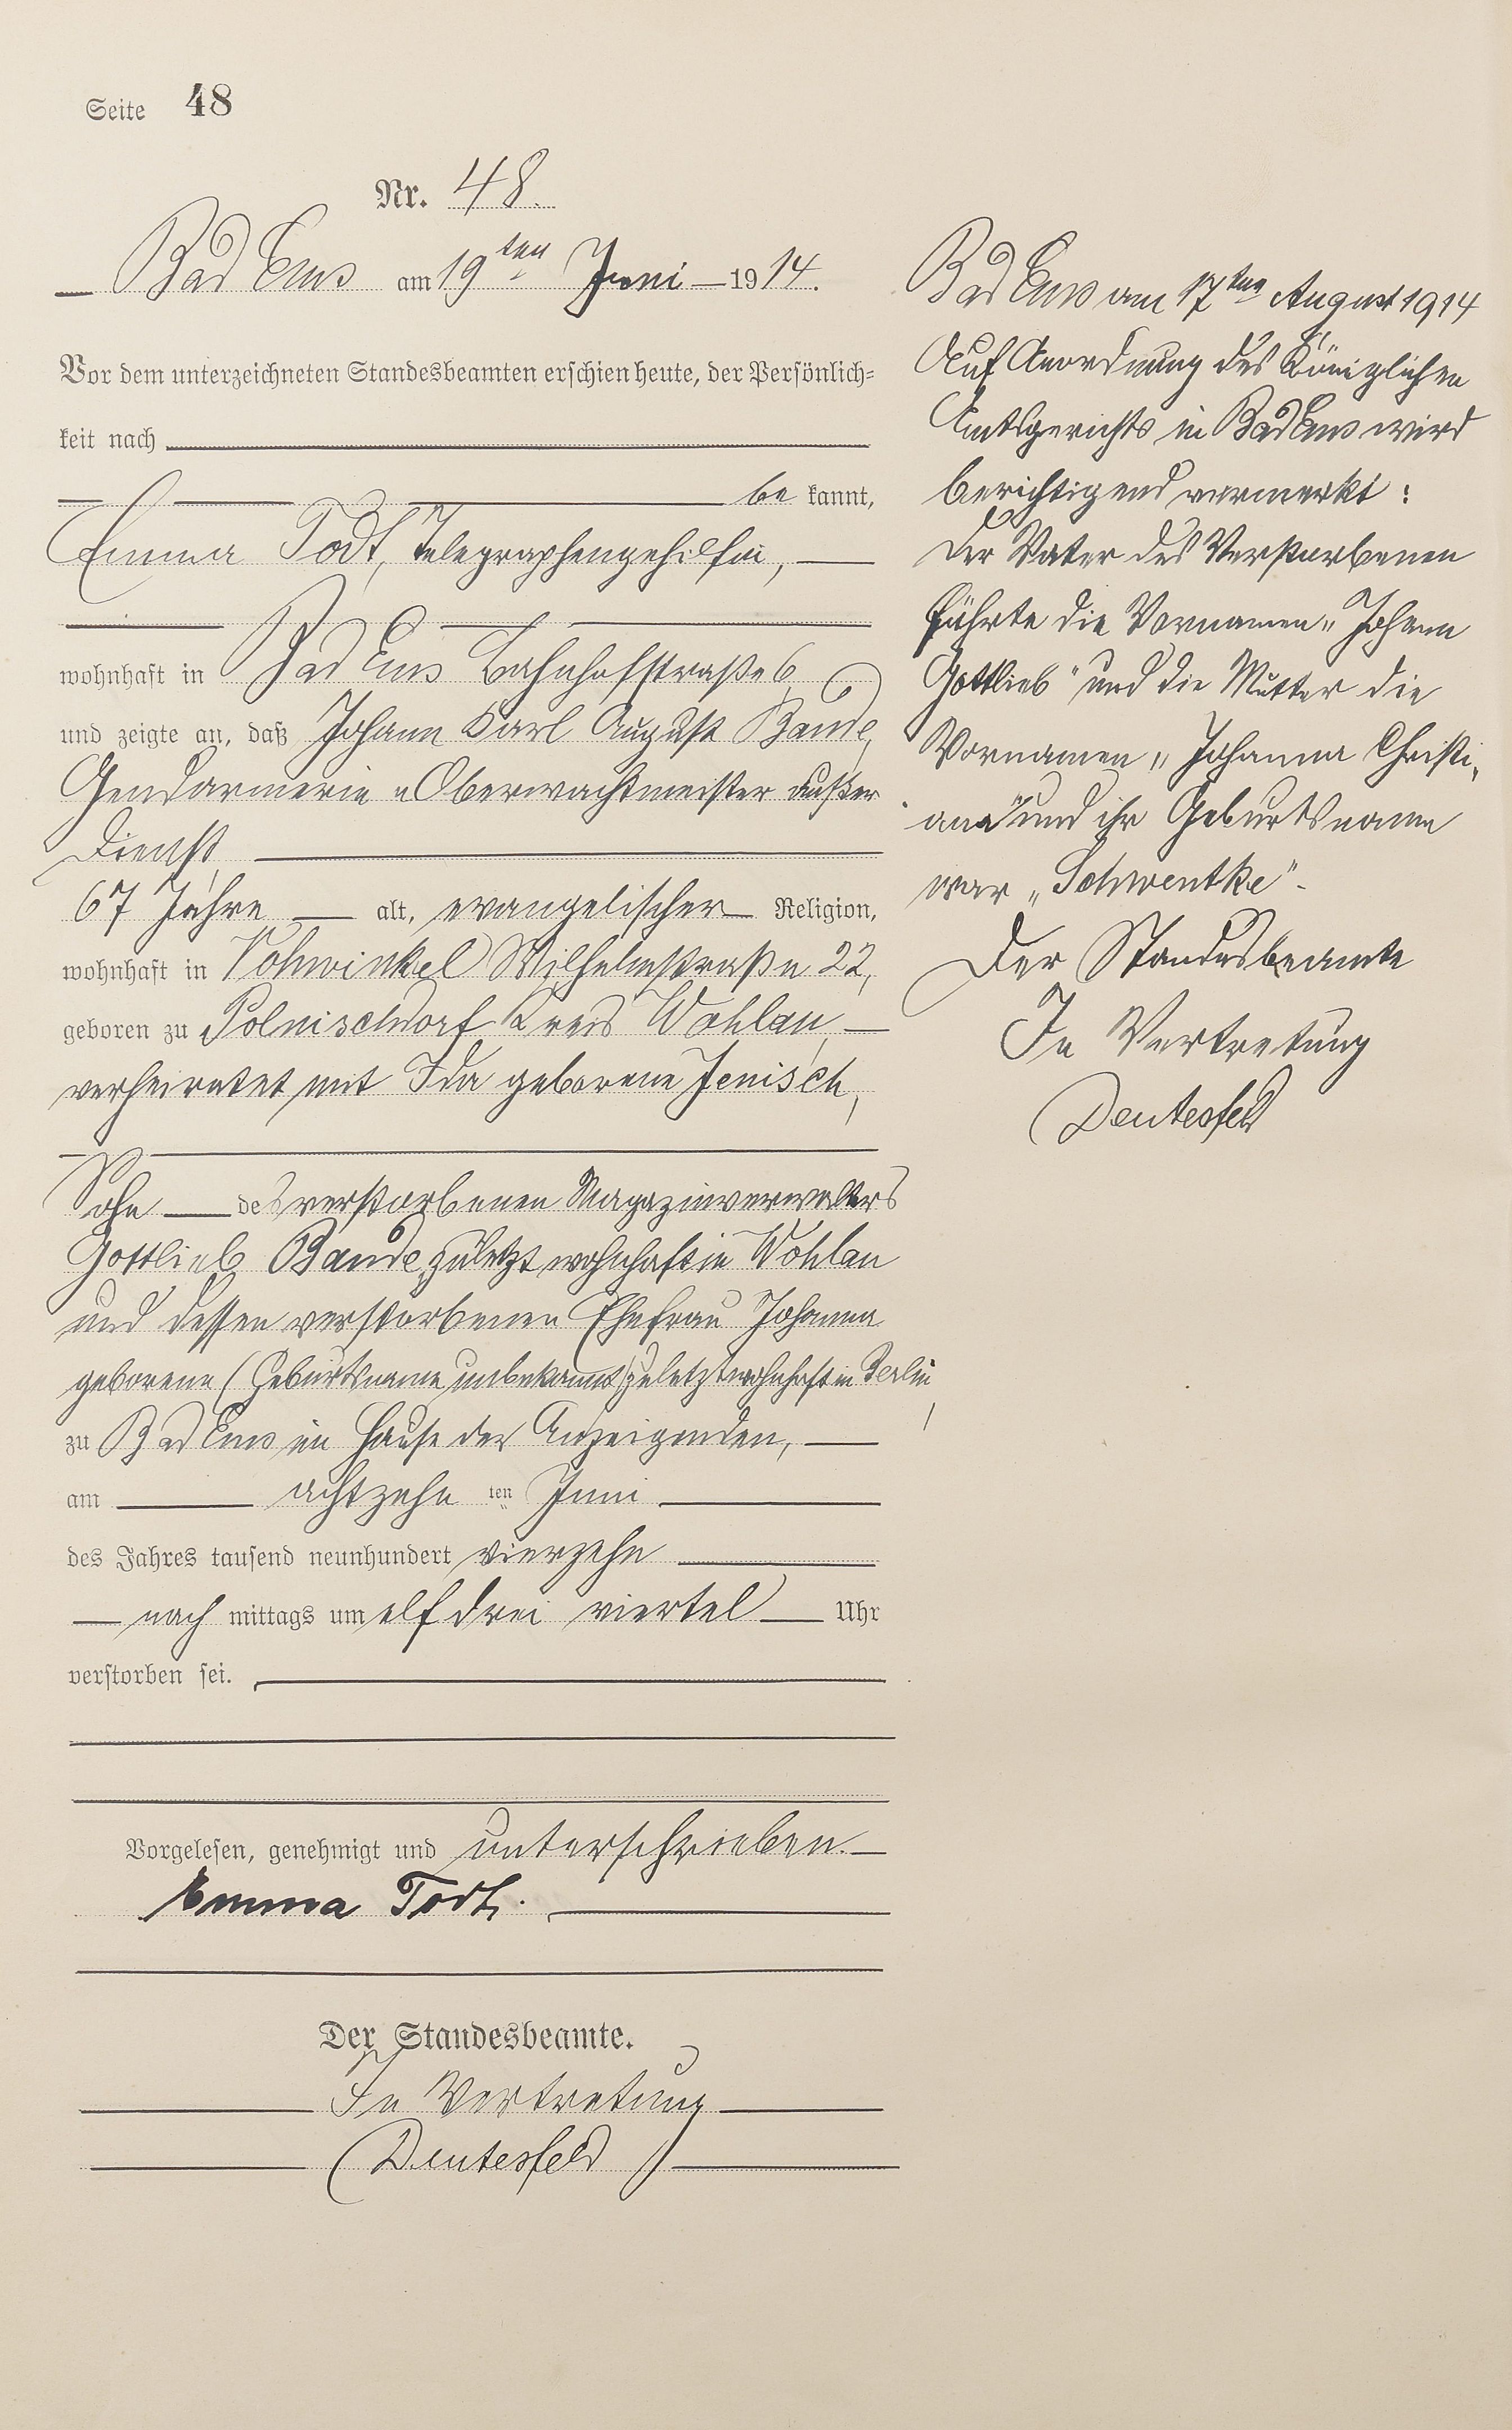 Seite 48
Nr. 48.
Bad Ems am 19ten Juni 1914.
Vor dem unterzeichneten Standesbeamten erschien heute, der Persönlich=
keit nach
be kannt,
Emma Todt, Telegraphengehilfin,
wohnhaft in Bad Ems Bahnhofstraße 6
und zeigte an, daß Johann Karl August Baude,
Gendarmerie-Oberwachtmeister außer
Dienst,
67 Jahre alt, evangelischer Religion,
wohnhaft in Vohwinkel Wilhelmstraße 22,
geboren zu Polnischdorf Kreis Wohlau,
verheiratet mit Ida geborene Jenisch,
Sohn des verstorbenen Magazinverwalters
Gottlieb Baude, zuletzt wohnhaft in Wohlau
und dessen verstorbenen Ehefrau Johanna
geborene (Geburtsname unbekannt) zuletzt wohnhaft in Berlin,
zu Bad Ems im Hause der Anzeigenden,
am achtzehn ten Juni
des Jahres tausend neunhundert vierzehn
nach mittags um elf drei viertel Uhr
verstorben sei.
Vorgelesen, genehmigt und unterschrieben.
Emma Todt.
Der Standesbeamte.
In Vertretung
Deutesfeld
Bad Ems am 17ten August 1914
Auf Anordnung des Königlichen
Amtsgerichts in Bad Ems wird
berichtigend vermerkt:
Der Vater des Verstorbenen
führte die Vornamen „Johann
Gottlieb" und die Mutter die
Vornamen „Johanna Christi-
ana" und ihr Geburtsname
war „Schwentke".
Der Standesbeamte
In Vertretung
Deutesfeld